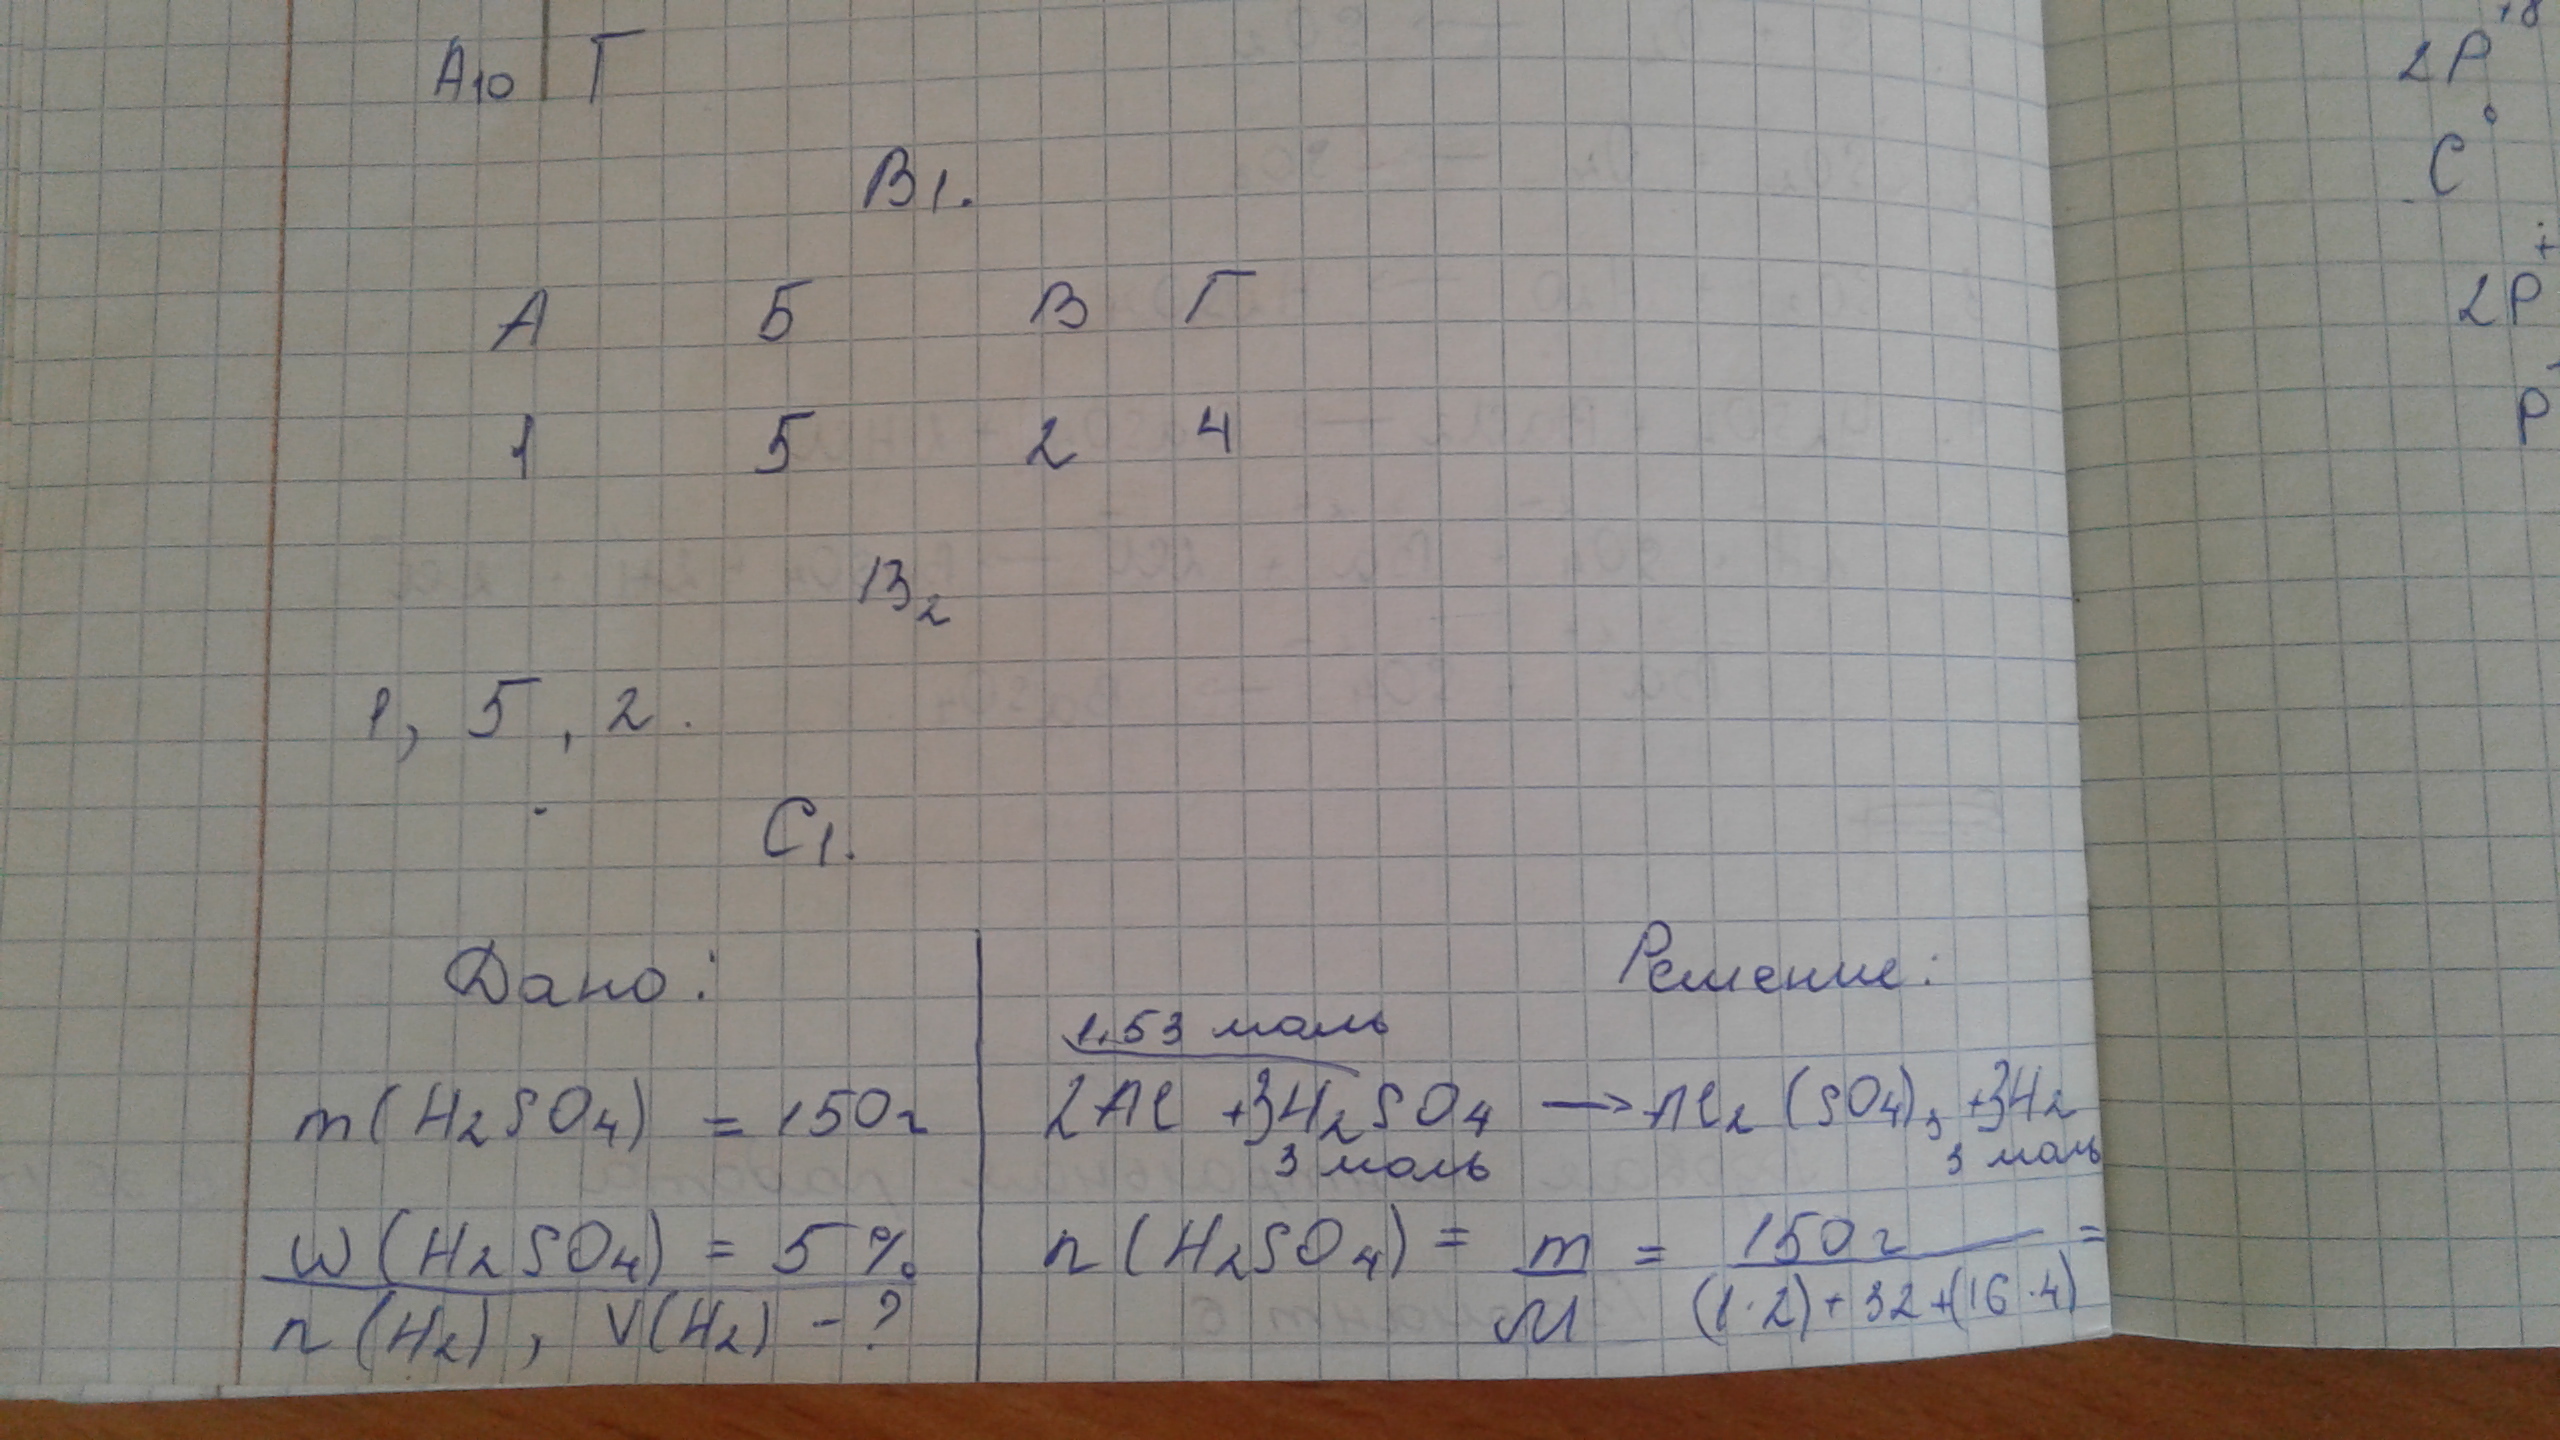 А10 | Г
В1.
А Б В Г
1 5 2 4
В2
1, 5, 2.
С1.
Дано:
m(H2SO4) = 150г
w(H2SO4) = 5%
n(H2), V(H2) - ?
Решение:
1,53 моль
2Al + 3H2SO4 → Al2(SO4)3 + 3H2
3 моль 3 моль
n(H2SO4) = m/M = 150г/((1·2)+32+(16·4)) =
2P+8
C0
2P+
P